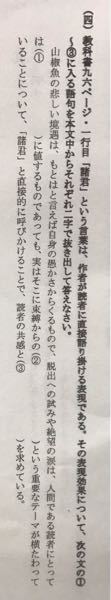 (四)教科書九六ページ・一行目「諸君」という言葉は、作者が読者に直接語り掛ける表現である。その表現効果について、次の文の①
～③に入る語句を本文中からそれぞれ二字で抜き出して答えなさい。
山椒魚の悲しい境遇は、もとはと言えば自身の愚かさからくるもので、脱出への試みや絶望の涙は、人間である読者にとって
は(①　　)に値するものであっても、実はそこに束縛からの(②　　)という重要なテーマが横たわって
いることについて、「諸君」と直接的に呼びかけることで、読者の共感と(③　　)を求めている。